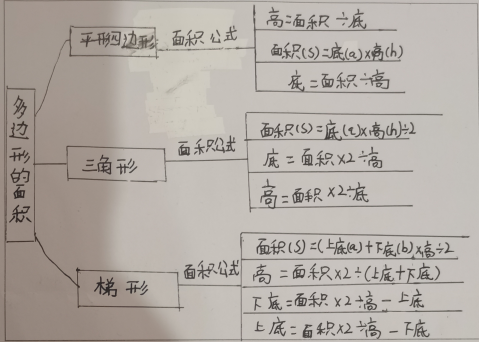 多边形的面积
平形四边形
面积公式
高=面积÷底
面积(S)=底(a)×高(h)
底=面积÷高
三角形
面积公式
面积(S)=底(a)×高(h)÷2
底=面积×2÷高
高=面积×2÷底
梯形
面积公式
面积(S)=(上底(a)+下底(b)×高÷2
高=面积×2÷(上底+下底)
下底=面积×2÷高-上底
上底=面积×2÷高-下底